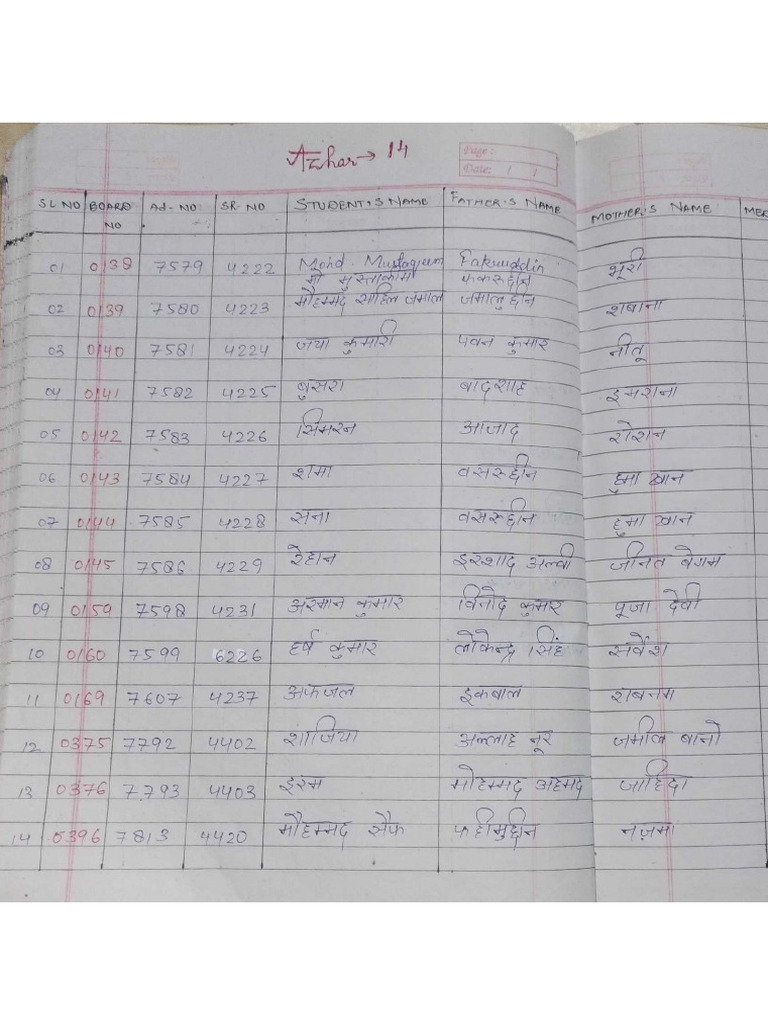 Azhar → 14
Page:
Date: / /
SL NO BOARD NO Ad-NO SR NO STUDENT,S NAME FATHER,S NAME MOTHER,S NAME
01 0138 7579 4222 Mohd. Mustaqeem Fakruddin भूरी
मौ मुस्ताकीम फकरूद्दीन
02 0139 7580 4223 मौहम्मद साहिल जमाल जमालुद्दीन शबाना
03 0140 7581 4224 जया कुमारी पवन कुमार नीतू
04 0141 7582 4225 बुसरा बादशाह इमराना
05 0142 7583 4226 सिमरन आजाद रोशन
06 0143 7584 4227 शमा वसरूद्दीन हुमा खान
07 0144 7585 4228 सना वसरूद्दीन हुमा खान
08 0145 7586 4229 रेहान इरशाद अल्वी जीनत बेगम
09 0159 7598 4231 अरमान कुमार विनोद कुमार पूजा देवी
10 0160 7599 6226 हर्ष कुमार लोकेन्द्र सिंह सर्वेश
11 0169 7607 4237 अफजल इकबाल शबनम
12 0375 7792 4402 शाजिया अल्लाह नूर जमील बानो
13 0376 7793 4403 इरम मोहम्मद अहमद जाहिदा
14 0396 7813 4420 मौहम्मद सैफ फहीमुद्दीन नज़मा